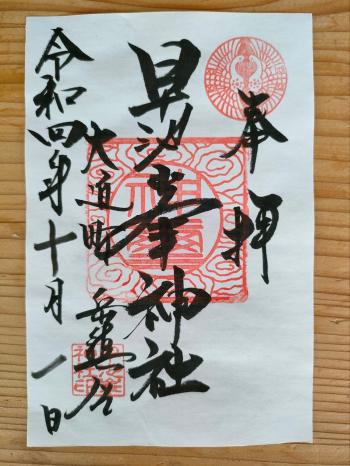 奉拝
早池峯神社
大迫町
令和四年十月一日